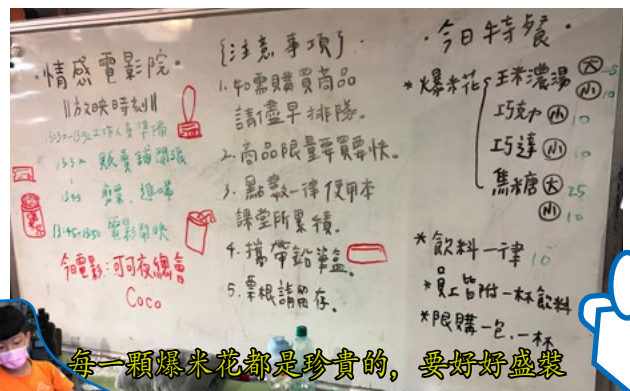 ·情感電影院·
||放映時刻||
13:30 販賣鋪開張
13:45 剪票、進場
13:45-13:50 電影開映
今日電影:可可夜總會
Coco
{注意事項}
1.如需購買商品
請儘早排隊。
2.商品限量要買要快。
3.點數一律使用本
課堂所累積。
4.攜帶鉛筆盒。
5.票根請留存。
·今日特餐·
*爆米花 玉米濃湯 大
小 10
巧克力 小 10
巧達 小 10
焦糖 大 25
小 10
*飲料一律 10
*員工皆附一杯飲料
*限購一包、一杯
每一顆爆米花都是珍貴的,要好好盛裝